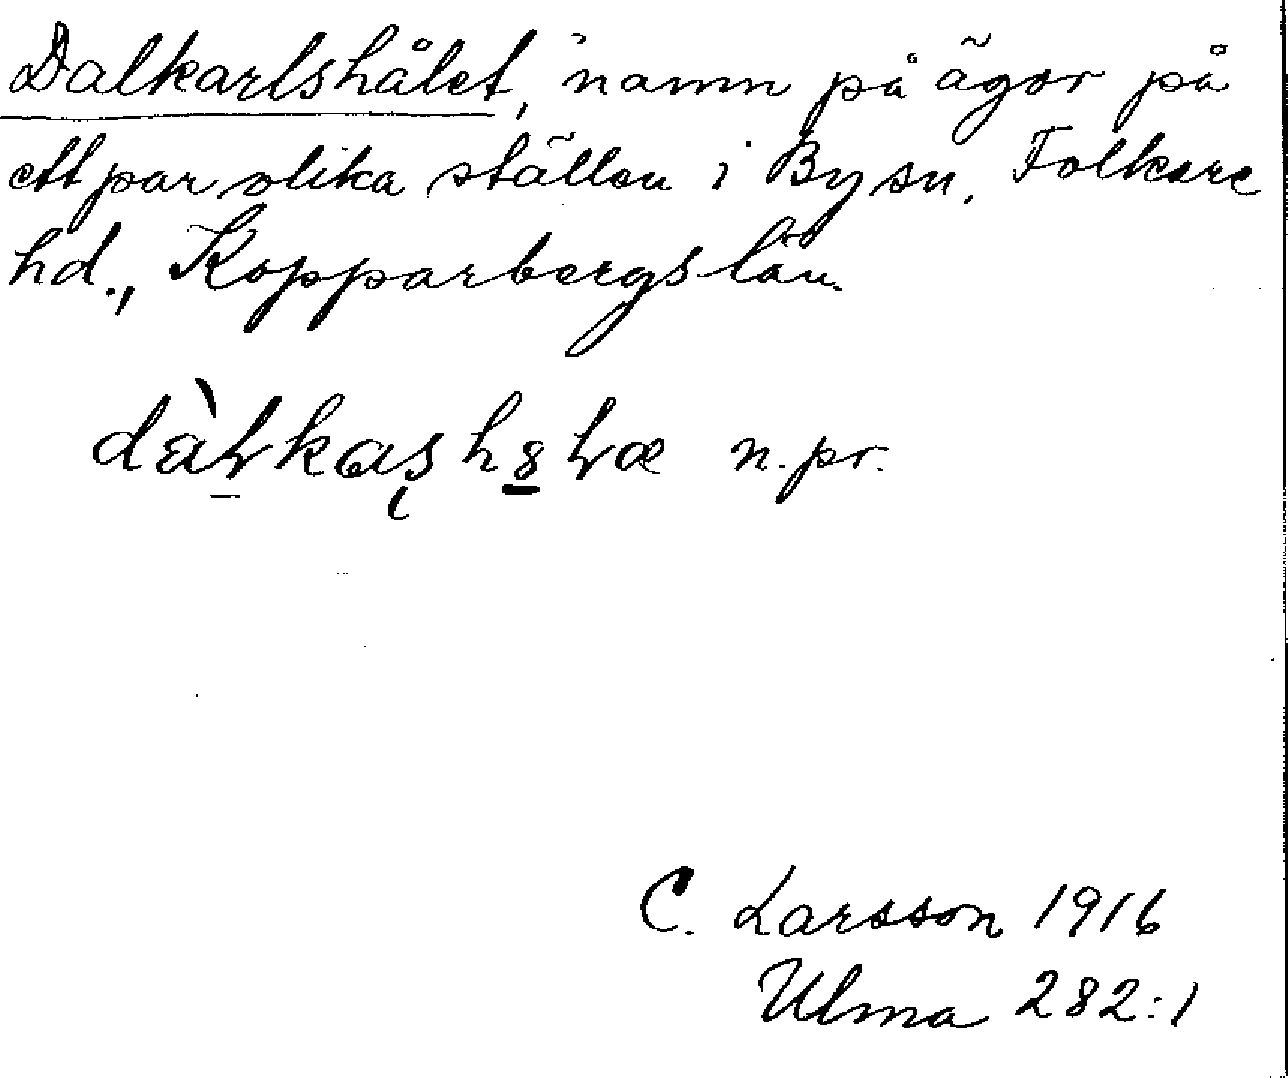 Dalkarlshålet, namn på ägor på
ett par olika ställen i By sn, Folkare
hd., Kopparbergs län.
n. pr.
C. Larsson 1916
Ulma 282:1